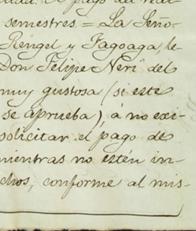 semestres = La Señor
Rengel y Fagoaga le
Don Felipe Neri del
muy gustosa (si este
se aprueba) á no exi-
solicitar el pago de
mientras no estén in-
chos, conforme al mis-